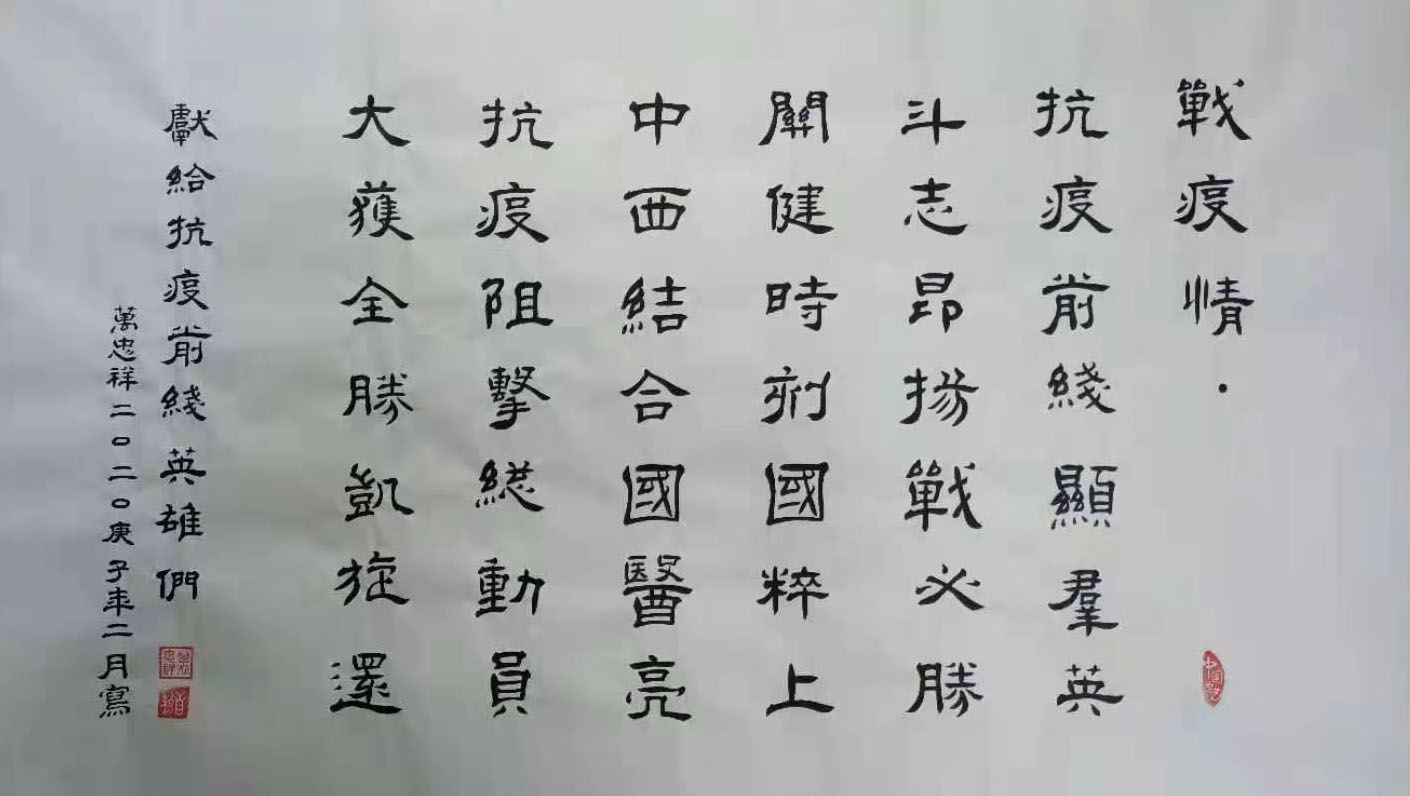 戰疫情·
抗疫前綫顯羣英
斗志昂揚戰必勝
關健時刻國粹上
中西結合國醫亮
抗疫阻擊總動員
大獲全勝凱旋還
獻給抗疫前綫英雄們
萬忠祥二〇二〇庚子年二月寫